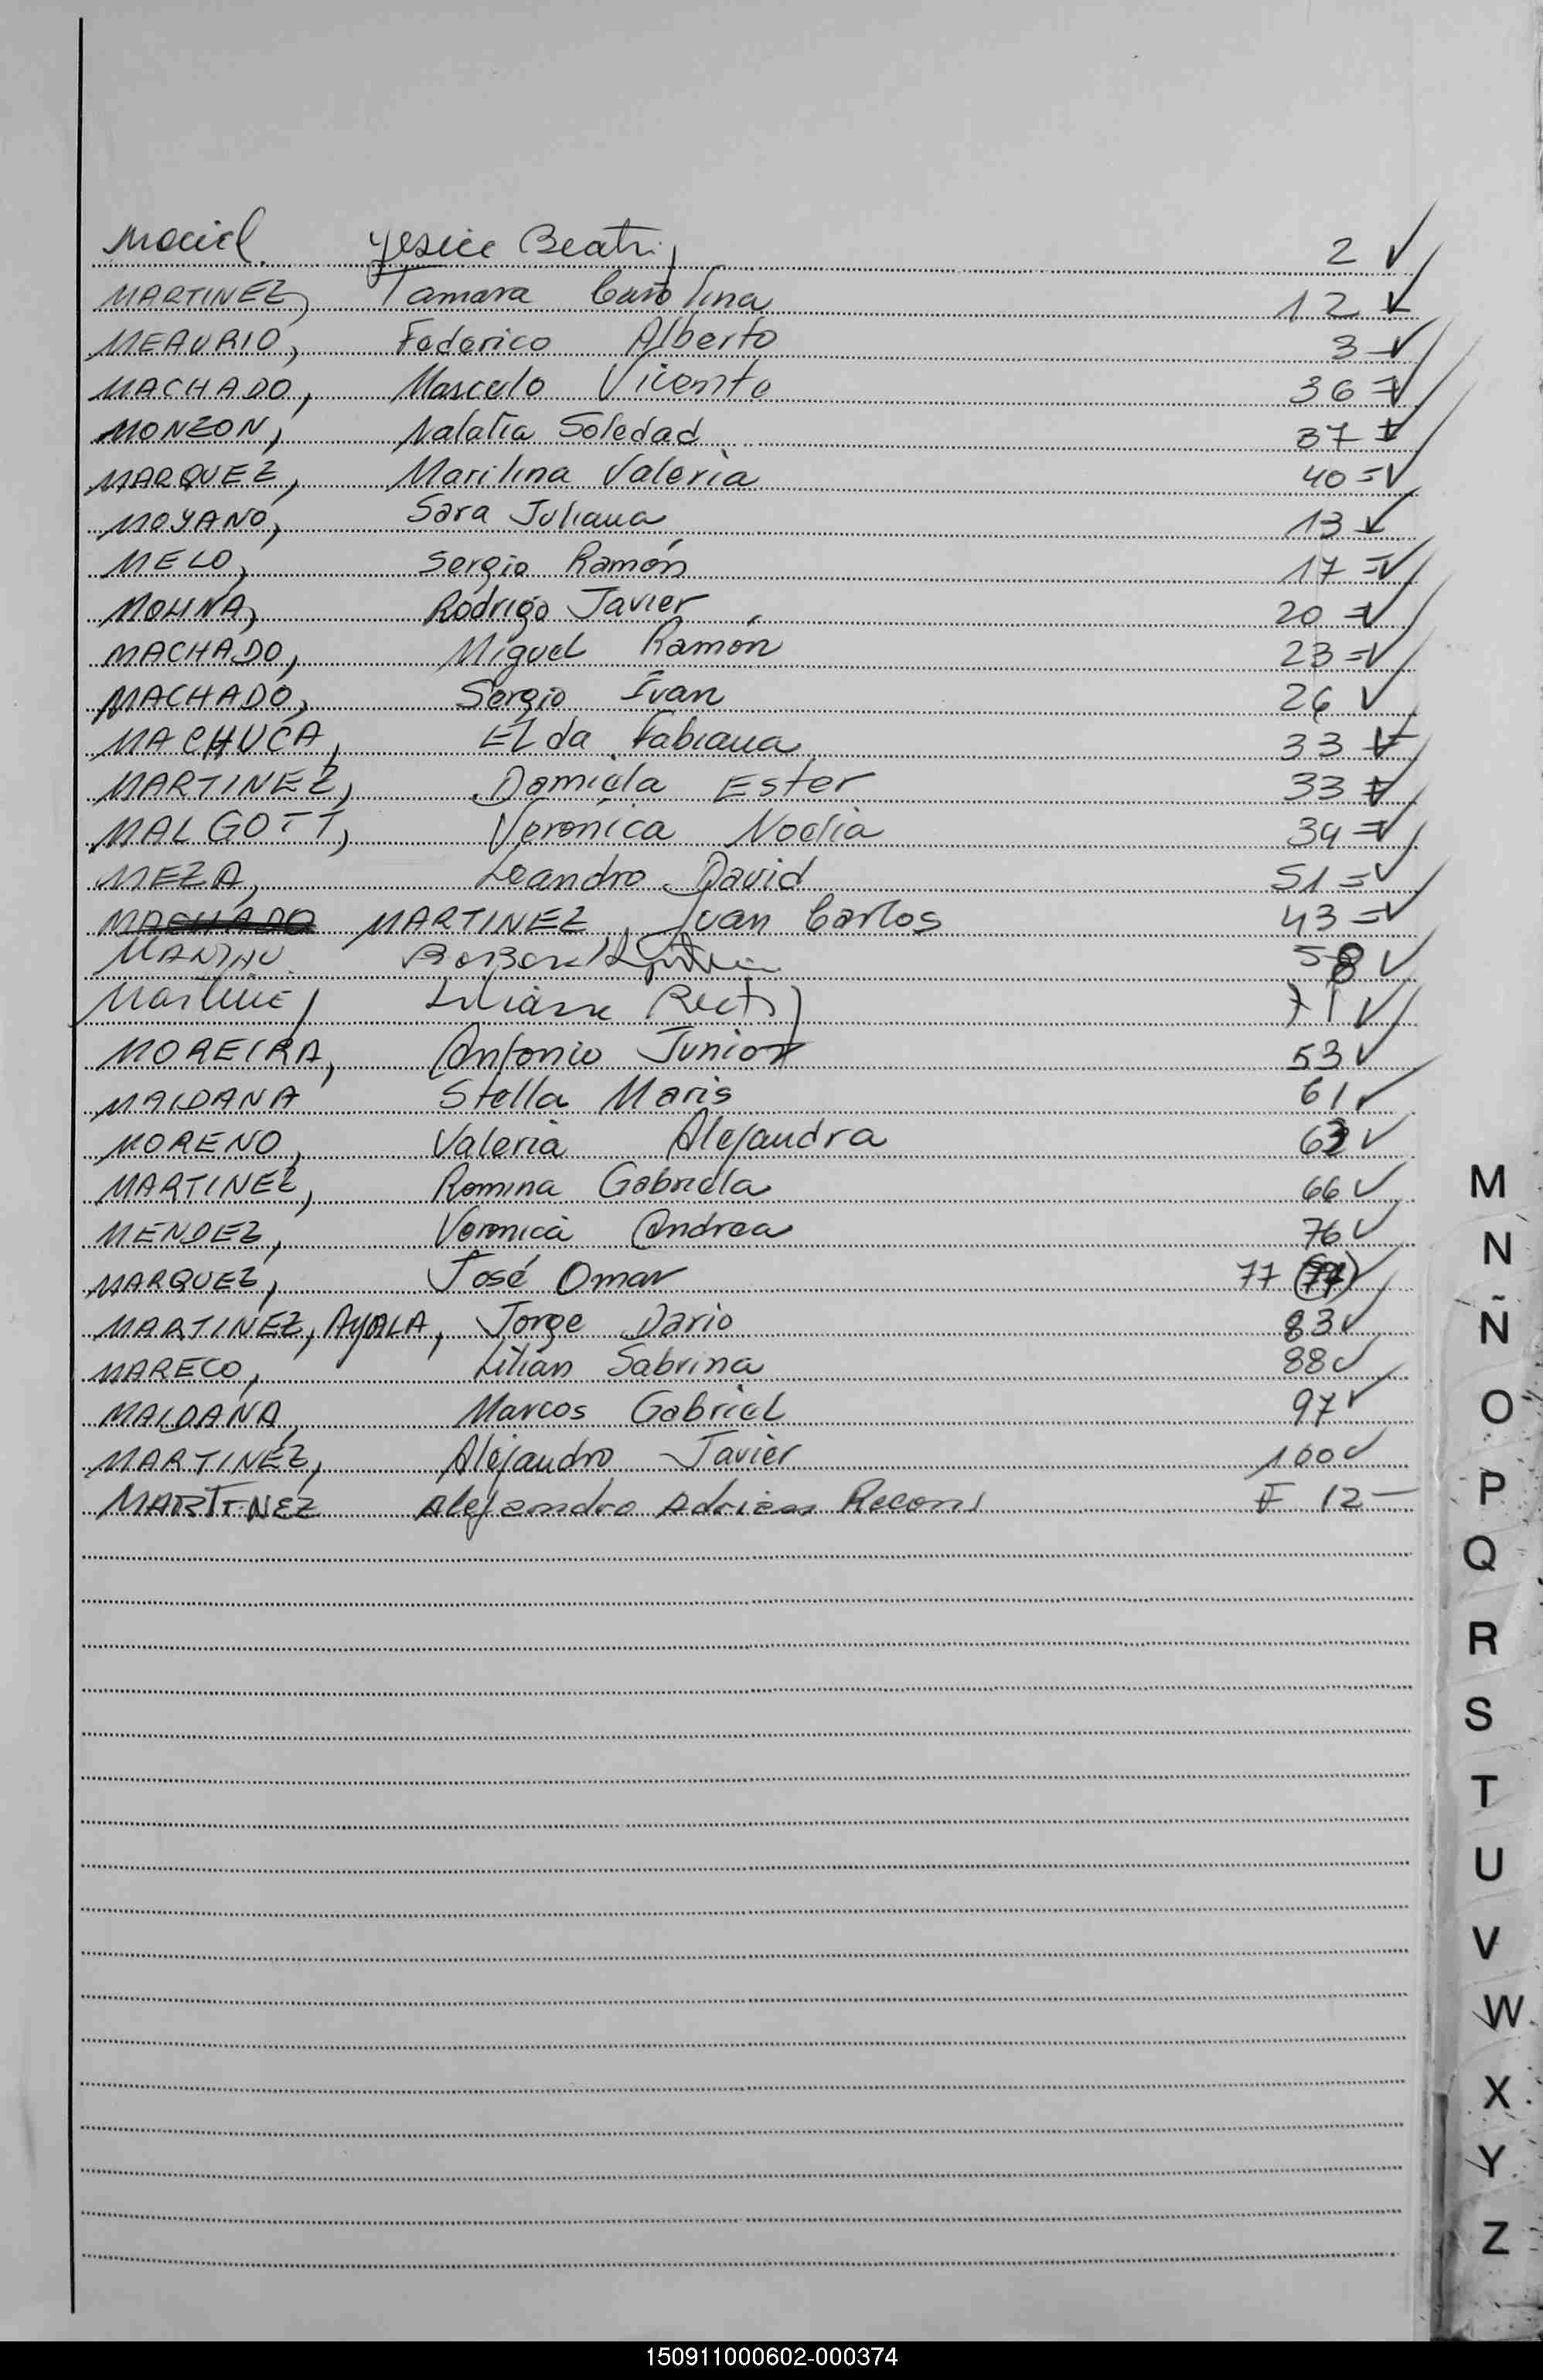 Maciel. Yesica Beatriz 2 ✓
MARTINEZ, Tamara Carolina 12 ✓
MEAURIO, Federico Alberto 3 ✓
MACHADO, Marcelo Vicente 36 =✓
MONZON, Natalia Soledad 37 ✓
MARQUEZ, Marilina Valeria 40 =✓
MOYANO, Sara Juliana 13 ✓
MELO, Sergio Ramón 17 =✓
MOLINA, Rodrigo Javier 20 =✓
MACHADO, Miguel Ramón 23 =✓
MACHADO, Sergio Ivan 26 ✓
MACHUCA, Elda Fabiana 33 ✓
MARTINEZ, Daniela Ester 33 ✓
MALGOTT, Veronica Noelia 39 =✓
MEZA, Leandro David 51 =✓
MACHADO MARTINEZ, Juan Carlos 43 =✓
58 ✓
Martinez Liliana 71 ✓
MOREIRA, Antonio Junior 53 ✓
MAIDANA Stella Maris 61 ✓
MORENO, Valeria Alejandra 63 ✓
MARTINEZ, Romina Gabriela 66 ✓
MENDEZ, Veronica Andrea 76 ✓
MARQUEZ, José Omar 77 (77) ✓
MARTINEZ, AYALA, Jorge Dario 83 ✓
MARECO, Lilian Sabrina 88 ✓
MAIDANA, Marcos Gabriel 97 ✓
MARTINEZ, Alejandro Javier 100 ✓
MARTINEZ Alejandro Adrian F 12 —
M
N
Ñ
O
P
Q
R
S
T
U
V
W
X
Y
Z
150911000602-000374